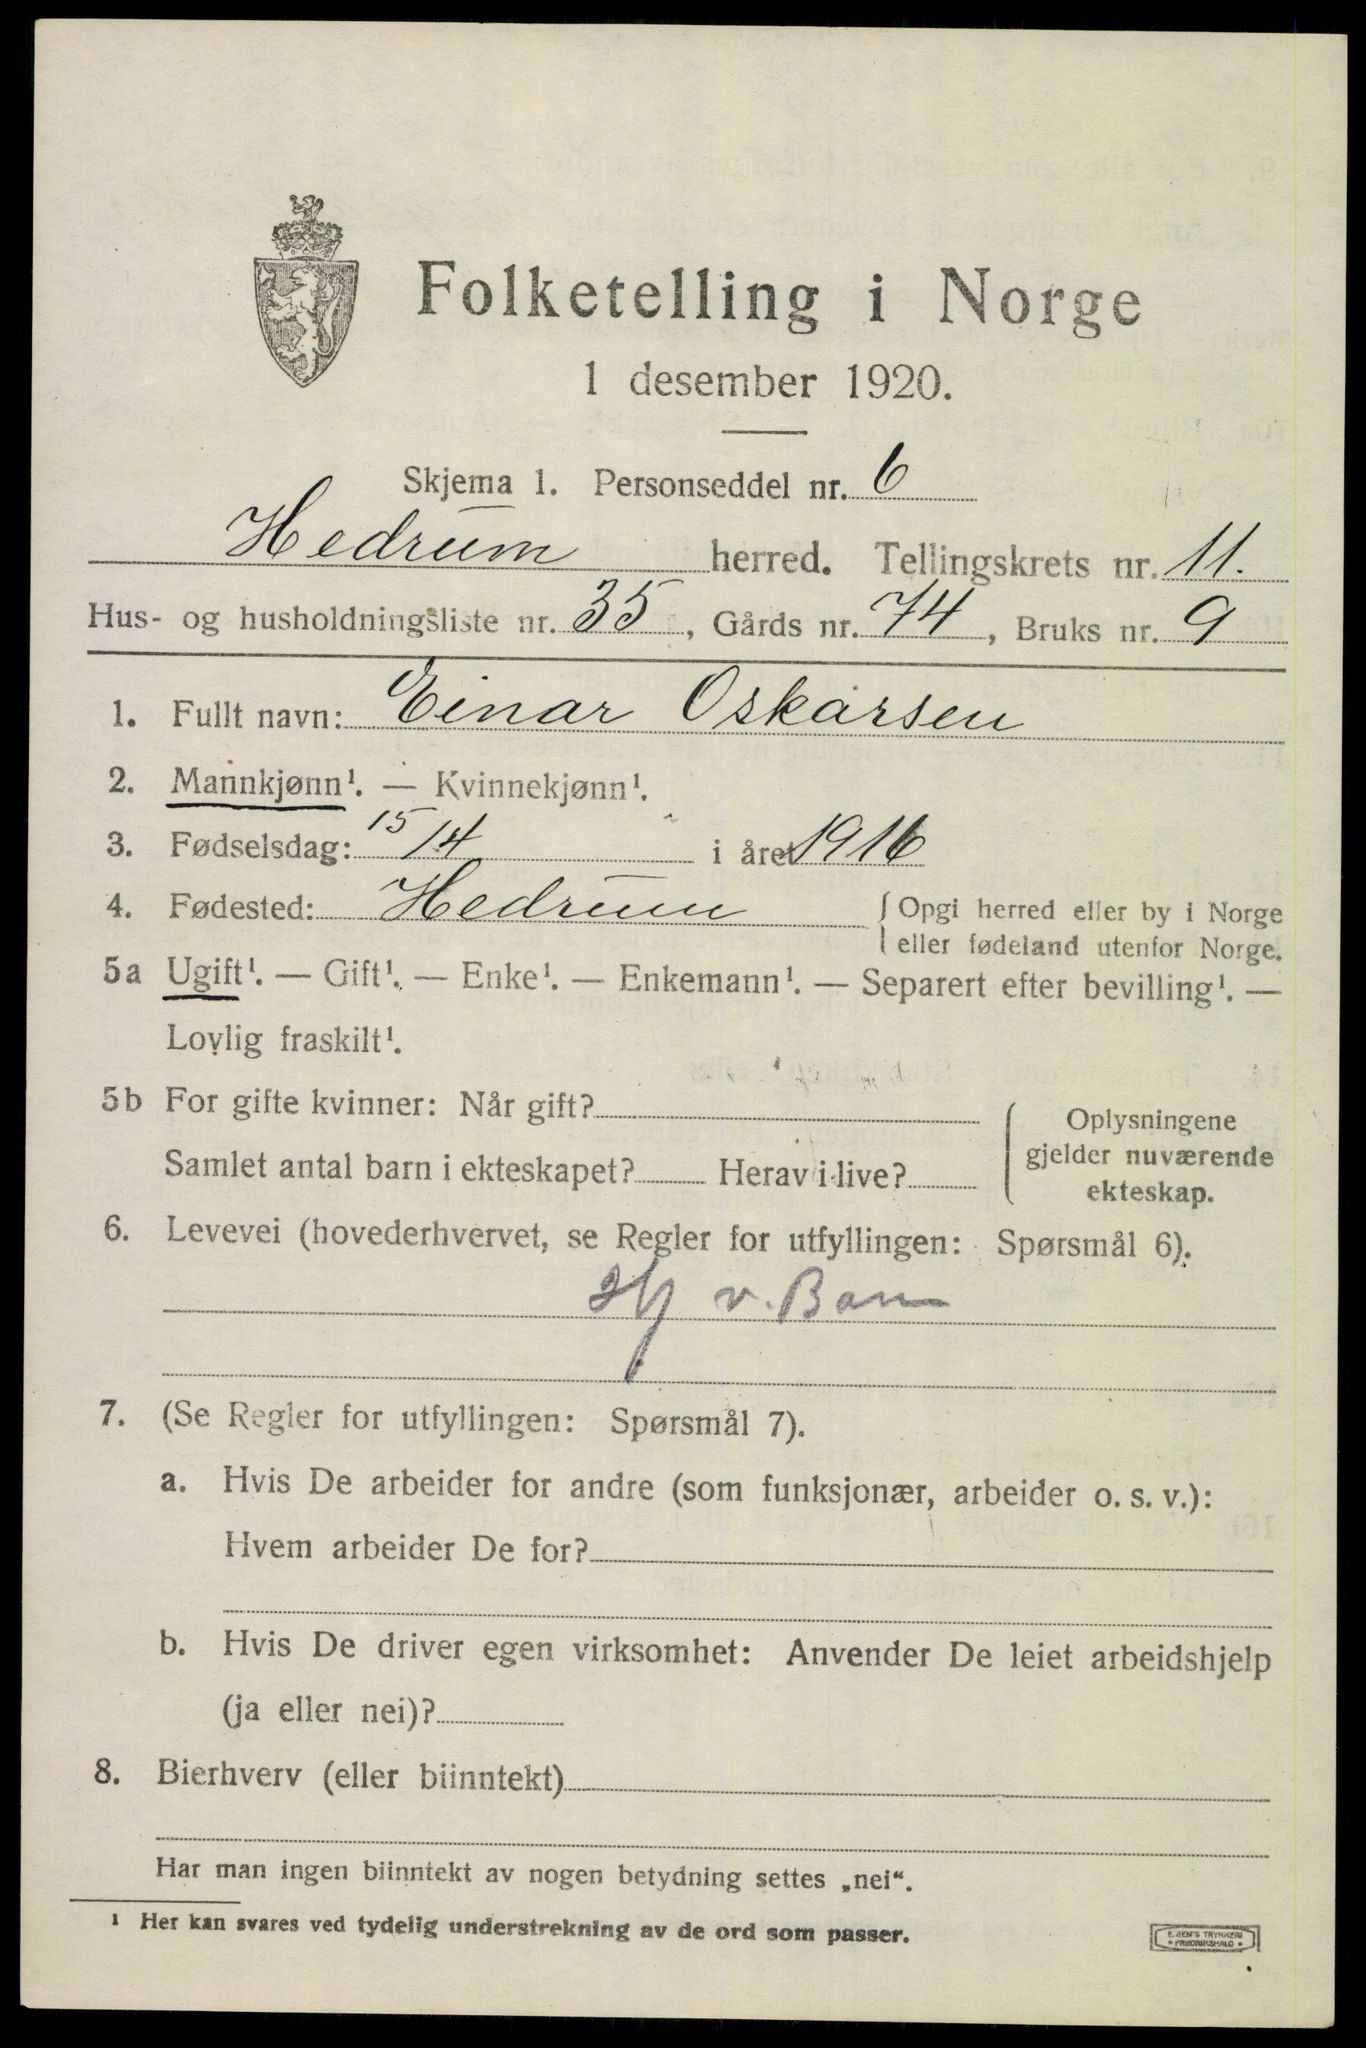 Folketelling i Norge
1 desember 1920.
Skjema 1. Personseddel nr. 6
Hedrum herred. Tellingskrets nr. 11.
Hus- og husholdningsliste nr. 35, Gårds nr. 74, Bruks nr. 9
1. Fullt navn: Einar Oskarsen
2. Mannkjønn¹. — Kvinnekjønn¹.
3. Fødselsdag: 15/4 i året 1916
4. Fødested: Hedrum { Opgi herred eller by i Norge
eller fødeland utenfor Norge.
5a Ugift¹. — Gift¹. — Enke¹. — Enkemann¹. — Separert efter bevilling¹. —
Lovlig fraskilt¹.
5b For gifte kvinner: Når gift?
Samlet antal barn i ekteskapet? Herav i live?
Oplysningene
gjelder nuværende
ekteskap.
6. Levevei (hovederhvervet, se Regler for utfyllingen: Spørsmål 6).
v. Barn
7. (Se Regler for utfyllingen: Spørsmål 7).
a. Hvis De arbeider for andre (som funksjonær, arbeider o. s. v.):
Hvem arbeider De for?
b. Hvis De driver egen virksomhet: Anvender De leiet arbeidshjelp
(ja eller nei)?
8. Bierhverv (eller biinntekt)
Har man ingen biinntekt av nogen betydning settes „nei“.
¹ Her kan svares ved tydelig understrekning av de ord som passer.
E. SEM'S TRYKKERI
• FREDRIKSHALD •